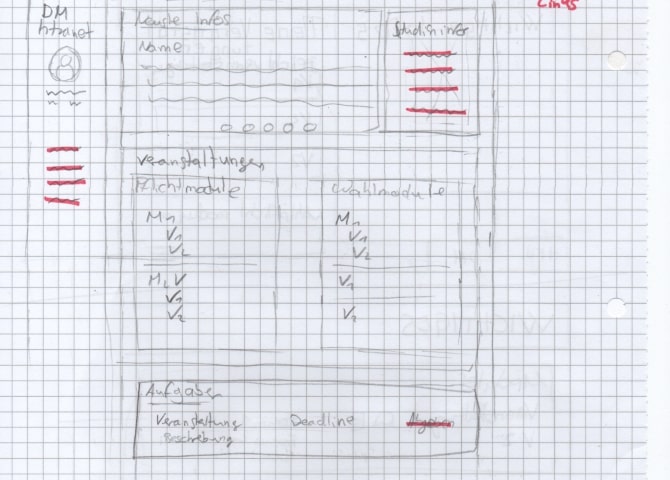 Links
DM
Intranet
Neuste Infos
Name
Studieninfos
Veranstaltungen
Pflichtmodule
M1
V1
V2
M2 V
V1
V2
Wahlmodule
M1
V1
V2
V1
V2
Aufgaben
Veranstaltung
Beschreibung
Deadline
Abgeben